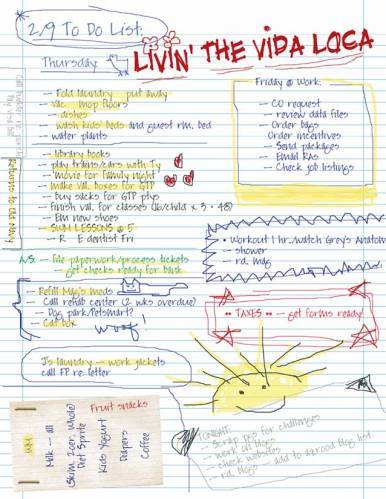 2/9 To Do List:
LIVIN' THE VIDA LOCA
Thursday:
-- Fold laundry put away
-- vac mop floors
-- dishes
-- wash kids' beds and guest rm. bed
-- water plants
-- library books
-- play trains/cars with Ty
-- movie for family night
-- make val. boxes for GTP
-- buy sacks for GTP phys
-- finish val. for classes (16/child x 3 = 48)
-- Em new shoes
-- SWIM LESSONS @ 5
-- R E dentist Fri
N.S. -- file paperwork/process tickets
get checks ready for bank
-- Refill Mag's meds
-- Call rehab center (2 wks overdue)
-- Dog park/Petsmart?
-- Cat box
woof!
J's laundry -- work jackets
call FP re: letter
Friday @ Work:
-- CO request
-- review data files
Order bags
Order incentives
-- Send packages
-- Email RAs
-- Check job listings
• Workout 1 hr...watch Grey's Anatomy
-- shower
-- rd. mag
•• TAXES •• -- get forms ready!
TONIGHT:
-- Scrap pgs for challenges
-- work on blogs
-- check websites
-- rd. blogs -- add to blog list
Returns to Old Navy
WM
Milk -- all
(Skim, 2%, whole)
Diet Sprite
Kids Yogurt
Fruit snacks
Diapers
Coffee